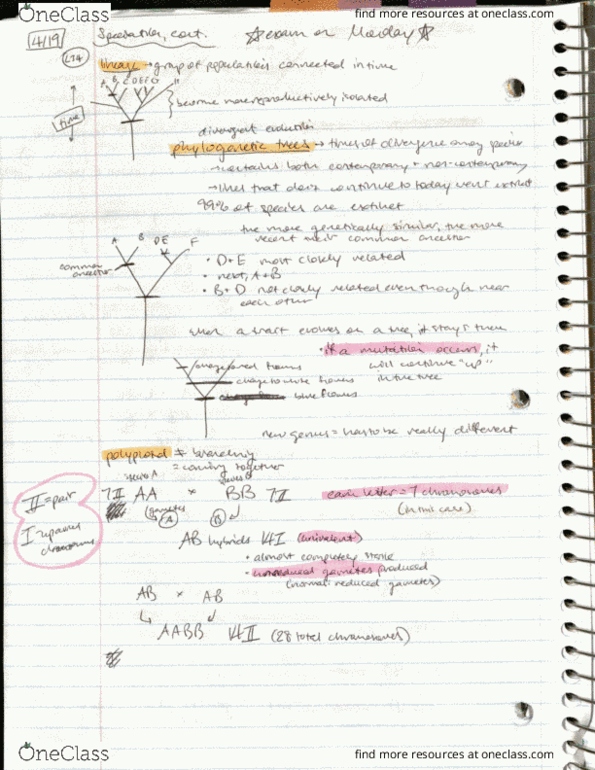 OneClass
find more resources at oneclass.com
4/19
Speciation, cont.
☆exam on Monday☆
L34
lineage → group of populations connected in time
A B C D E F G H
} become more reproductively isolated
time
divergent evolution
phylogenetic trees → times of divergence among species
→ contains both contemporary + non-contemporary
→ lines that don't continue to today went extinct
99% of species are extinct
the more genetically similar, the more
recent their common ancestor
A B DE F
common
ancestor
• D+E most closely related
• next, A+B
• B+D not closely related even though near
each other
when a trait evolves on a tree, it stays there
• if a mutation occurs, it
will continue "up"
in the tree
flowers
change to white flowers
blue flowers
new genus = has to be really different
polyploid ≠ branching
= coming together
II = pair
I = unpaired
chromosome
7II AA × BB 7II
each letter = 7 chromosomes
(in this case)
(gametes)
A B
AB hybrids 14I (univalent)
• almost completely sterile
• unreduced gametes produced
(normal: reduced gametes)
AB × AB
AABB 14II (28 total chromosomes)
OneClass
find more resources at oneclass.com